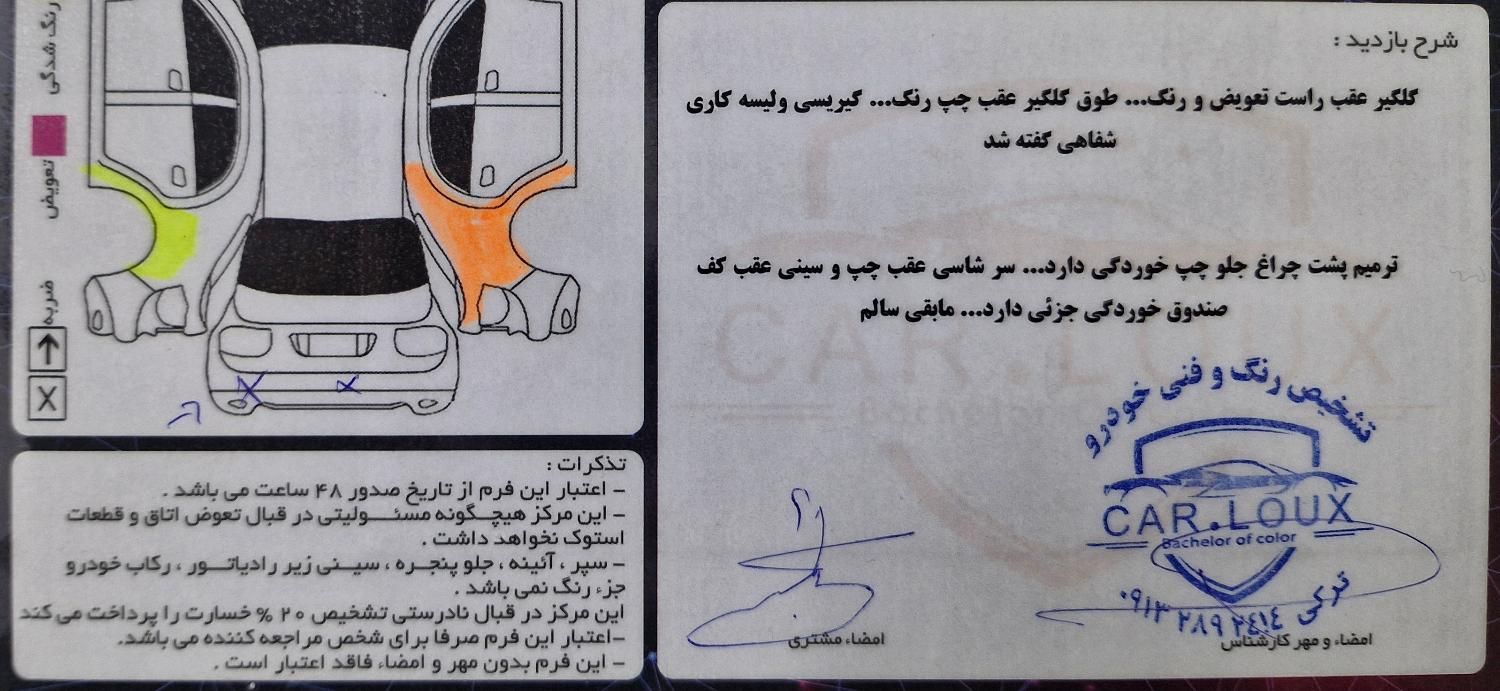 رنگ شدگی
تعویض
ضربه
X
تذکرات :
- اعتبار این فرم از تاریخ صدور ۴۸ ساعت می باشد .
- این مرکز هیچگونه مسئولیتی در قبال تعوض اتاق و قطعات
استوک نخواهد داشت .
- سپر ، آئینه ، جلو پنجره ، سینی زیر رادیاتور ، رکاب خودرو
جزء رنگ نمی باشد .
این مرکز در قبال نادرستی تشخیص ۲۰ % خسارت را پرداخت می کند
-اعتبار این فرم صرفا برای شخص مراجعه کننده می باشد.
- این فرم بدون مهر و امضاء فاقد اعتبار است .
شرح بازدید :
گلگیر عقب راست تعویض و رنگ... طوق گلگیر عقب چپ رنگ... گیریسی ولیسه کاری
شفاهی گفته شد
ترمیم پشت چراغ جلو چپ خوردگی دارد... سر شاسی عقب چپ و سینی عقب کف
صندوق خوردگی جزئی دارد... مابقی سالم
CAR.LOUX
تشخیص رنگ و فنی خودرو
CAR.LOUX
Bachelor of color
ترکی ۰۹۱۳ ۲۸۹ ۲۴۱۴
امضاء مشتری
امضاء و مهر کارشناس